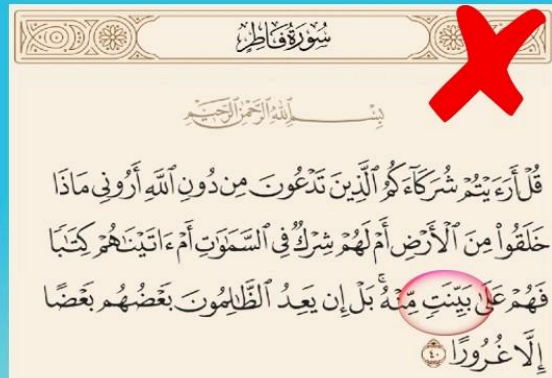 سُورَةُ فَاطِرٍ
بِسْمِ اللَّهِ الرَّحْمَٰنِ الرَّحِيمِ
قُلْ أَرَءَيْتُمْ شُرَكَآءَكُمُ ٱلَّذِينَ تَدْعُونَ مِن دُونِ ٱللَّهِ أَرُونِى مَاذَا
خَلَقُوا۟ مِنَ ٱلْأَرْضِ أَمْ لَهُمْ شِرْكٌ فِى ٱلسَّمَٰوَٰتِ أَمْ ءَاتَيْنَٰهُمْ كِتَٰبًا
فَهُمْ عَلَىٰ بَيِّنَتٍ مِّنْهُ ۚ بَلْ إِن يَعِدُ ٱلظَّٰلِمُونَ بَعْضُهُم بَعْضًا
إِلَّا غُرُورًا ٤٠